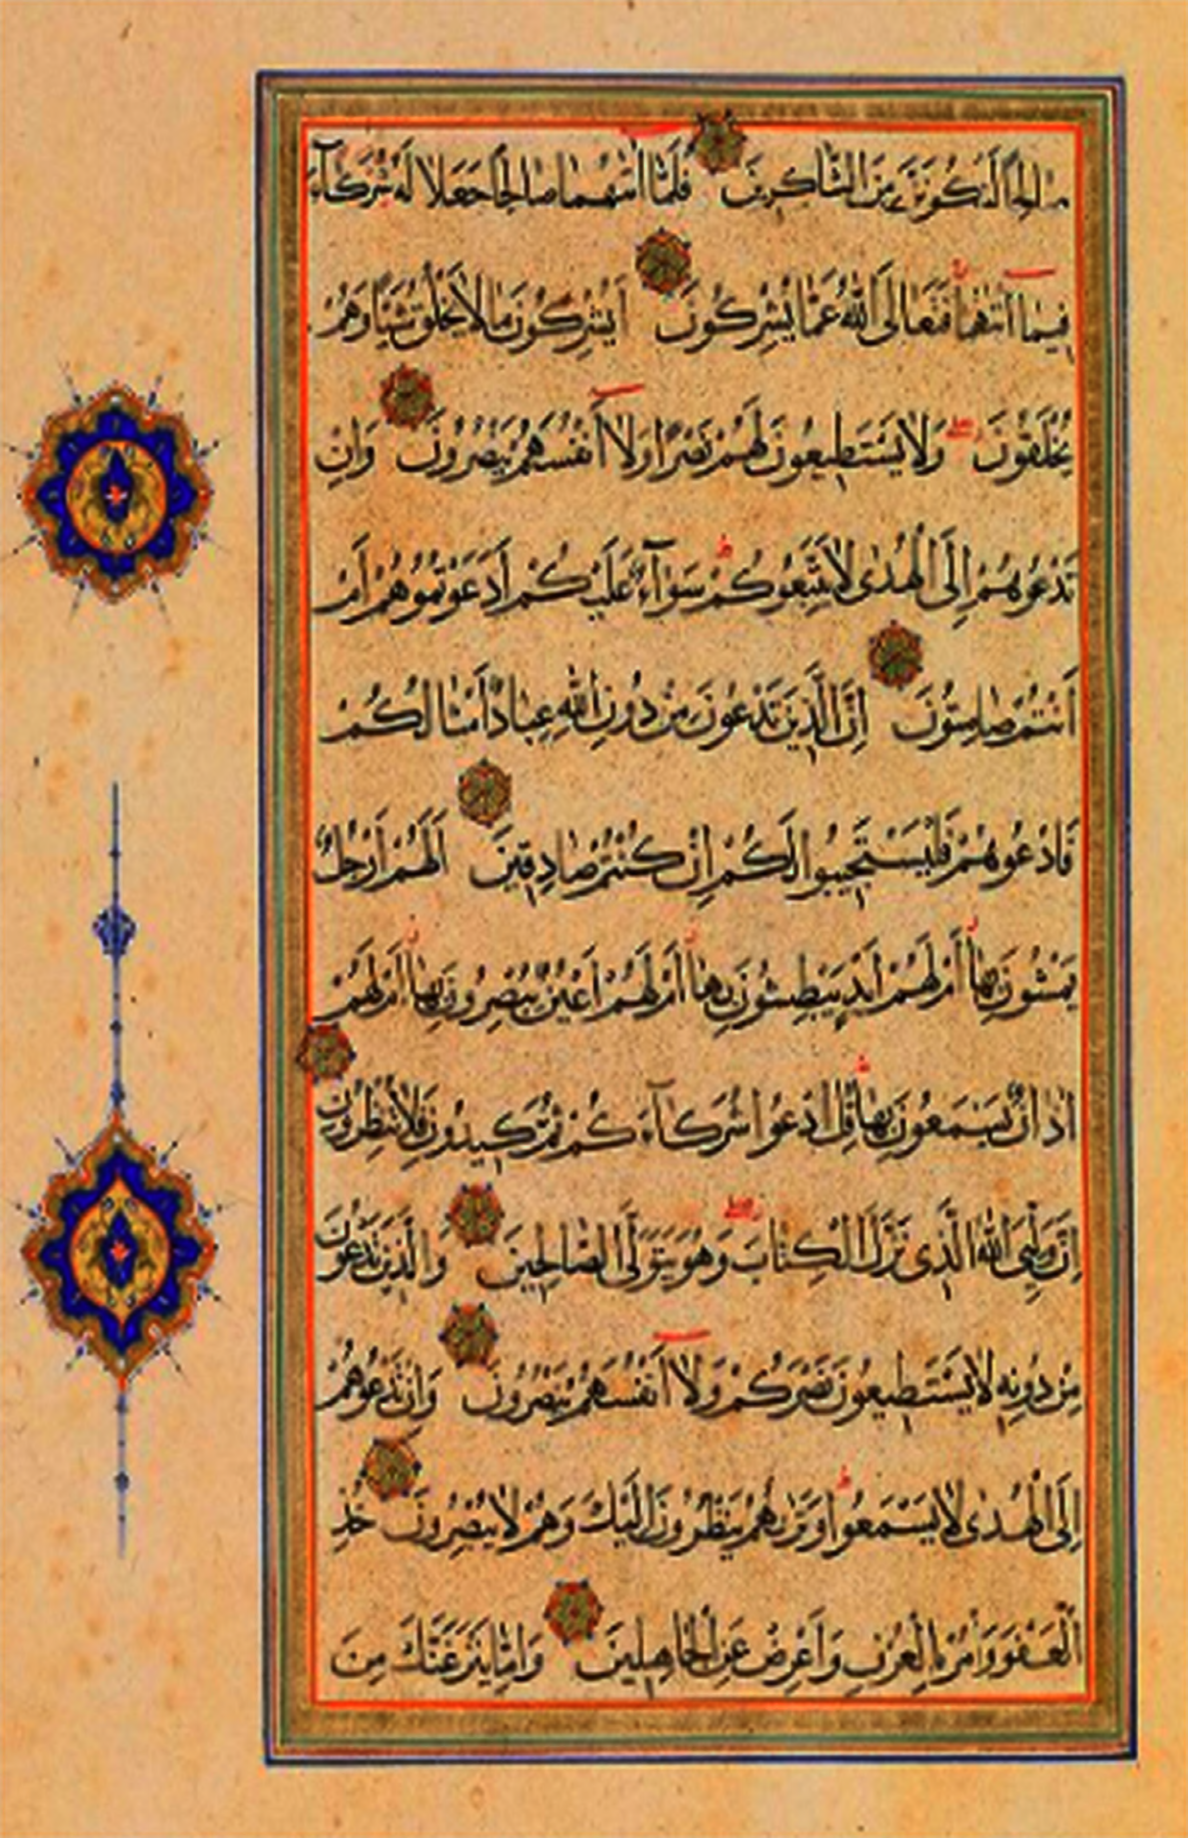 صالحا لنكونن من الشاكرين فلما آتيهما صالحا جعلا له شركآء
فيمآ آتيهما فتعالى الله عما يشركون أيشركون ما لا يخلق شيئا وهم
يخلقون ولا يستطيعون لهم نصرا ولآ أنفسهم ينصرون وإن
تدعوهم إلى الهدى لا يتبعوكم سوآء عليكم أدعوتموهم أم
أنتم صامتون إن الذين تدعون من دون الله عباد أمثالكم
فادعوهم فليستجيبوا لكم إن كنتم صادقين ألهم أرجل
يمشون بها أم لهم أيد يبطشون بها أم لهم أعين يبصرون بها أم لهم
اذان يسمعون بها قل ادعوا شركآءكم ثم كيدون فلا تنظرون
إن وليي الله الذي نزل الكتاب وهو يتولى الصالحين والذين تدعون
من دونه لا يستطيعون نصركم ولآ أنفسهم ينصرون وإن تدعوهم
إلى الهدى لا يسمعوا وتريهم ينظرون إليك وهم لا يبصرون خذ
العفو وأمر بالعرف وأعرض عن الجاهلين وإما ينزغنك من